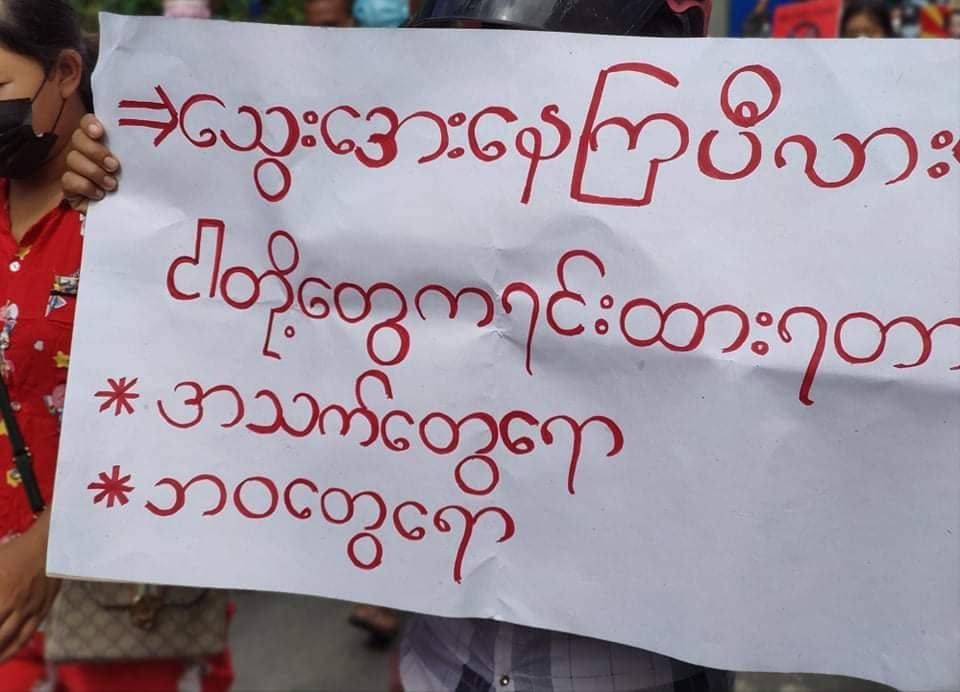 ⇒သွေးအေးနေကြပီလား
ငါတို့တွေကရင်းထားရတာ
* အာသက်တွေရော
* ဘဝတွေရော